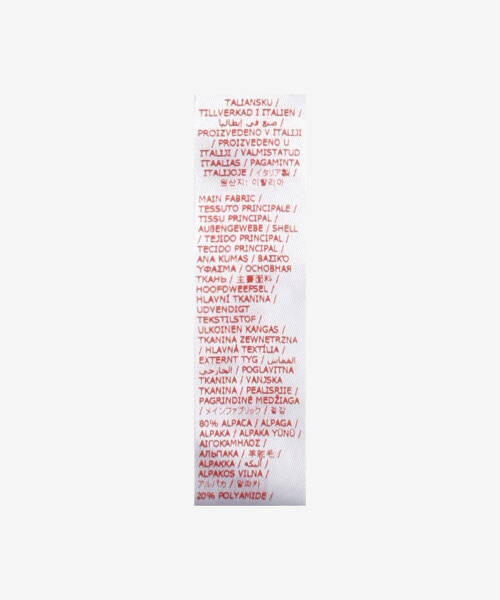 TALIANSKU /
TILLVERKAD I ITALIEN /
صنع في إيطاليا /
PROIZVEDENO V ITALIJI
/ PROIZVEDENO U
ITALIJI / VALMISTATUD
ITAALIAS / PAGAMINTA
ITALIJOJE / イタリア製 /
원산지: 이탈리아
MAIN FABRIC /
TESSUTO PRINCIPALE /
TISSU PRINCIPAL /
AUßENGEWEBE / SHELL
/ TEJIDO PRINCIPAL /
TECIDO PRINCIPAL /
ANA KUMAS / ΒΑΣΙΚΌ
ΎΦΑΣΜΑ / ОСНОВНАЯ
ТКАНЬ / 主要面料 /
HOOFDWEEFSEL /
HLAVNÍ TKANINA /
UDVENDIGT
TEKSTILSTOF /
ULKOINEN KANGAS /
TKANINA ZEWNĘTRZNA
/ HLAVNÁ TEXTÍLIA /
EXTERNT TYG / القماش
الخارجي / POGLAVITNA
TKANINA / VANJSKA
TKANINA / PEALISRIIE /
PAGRINDINĖ MEDŽIAGA
/ メインファブリック / 겉감
80% ALPACA / ALPAGA /
ALPAKA / ALPAKA YÜNÜ /
ΑΙΓΟΚΆΜΗΛΟΣ /
АЛЬПАКА / 羊驼毛 /
ALPAKKA / ألبكه /
ALPAKOS VILNA /
アルパカ / 알파카
20% POLYAMIDE /